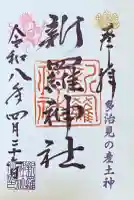 奉拝
多治見の産土神
新羅神社
令和八年四月三十日